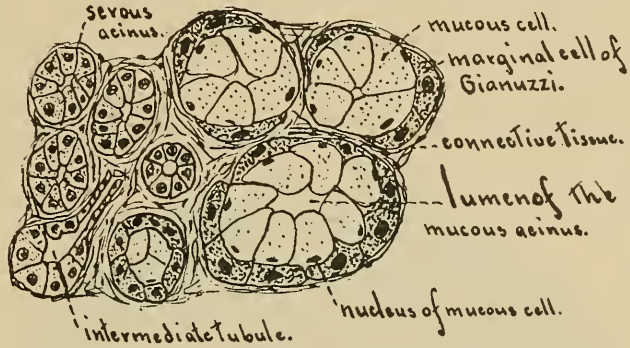 serous
acinus.
mucous cell.
marginal cell of
Gianuzzi.
connective tissue.
lumen of the
mucous acinus.
nucleus of mucous cell.
intermediate tubule.